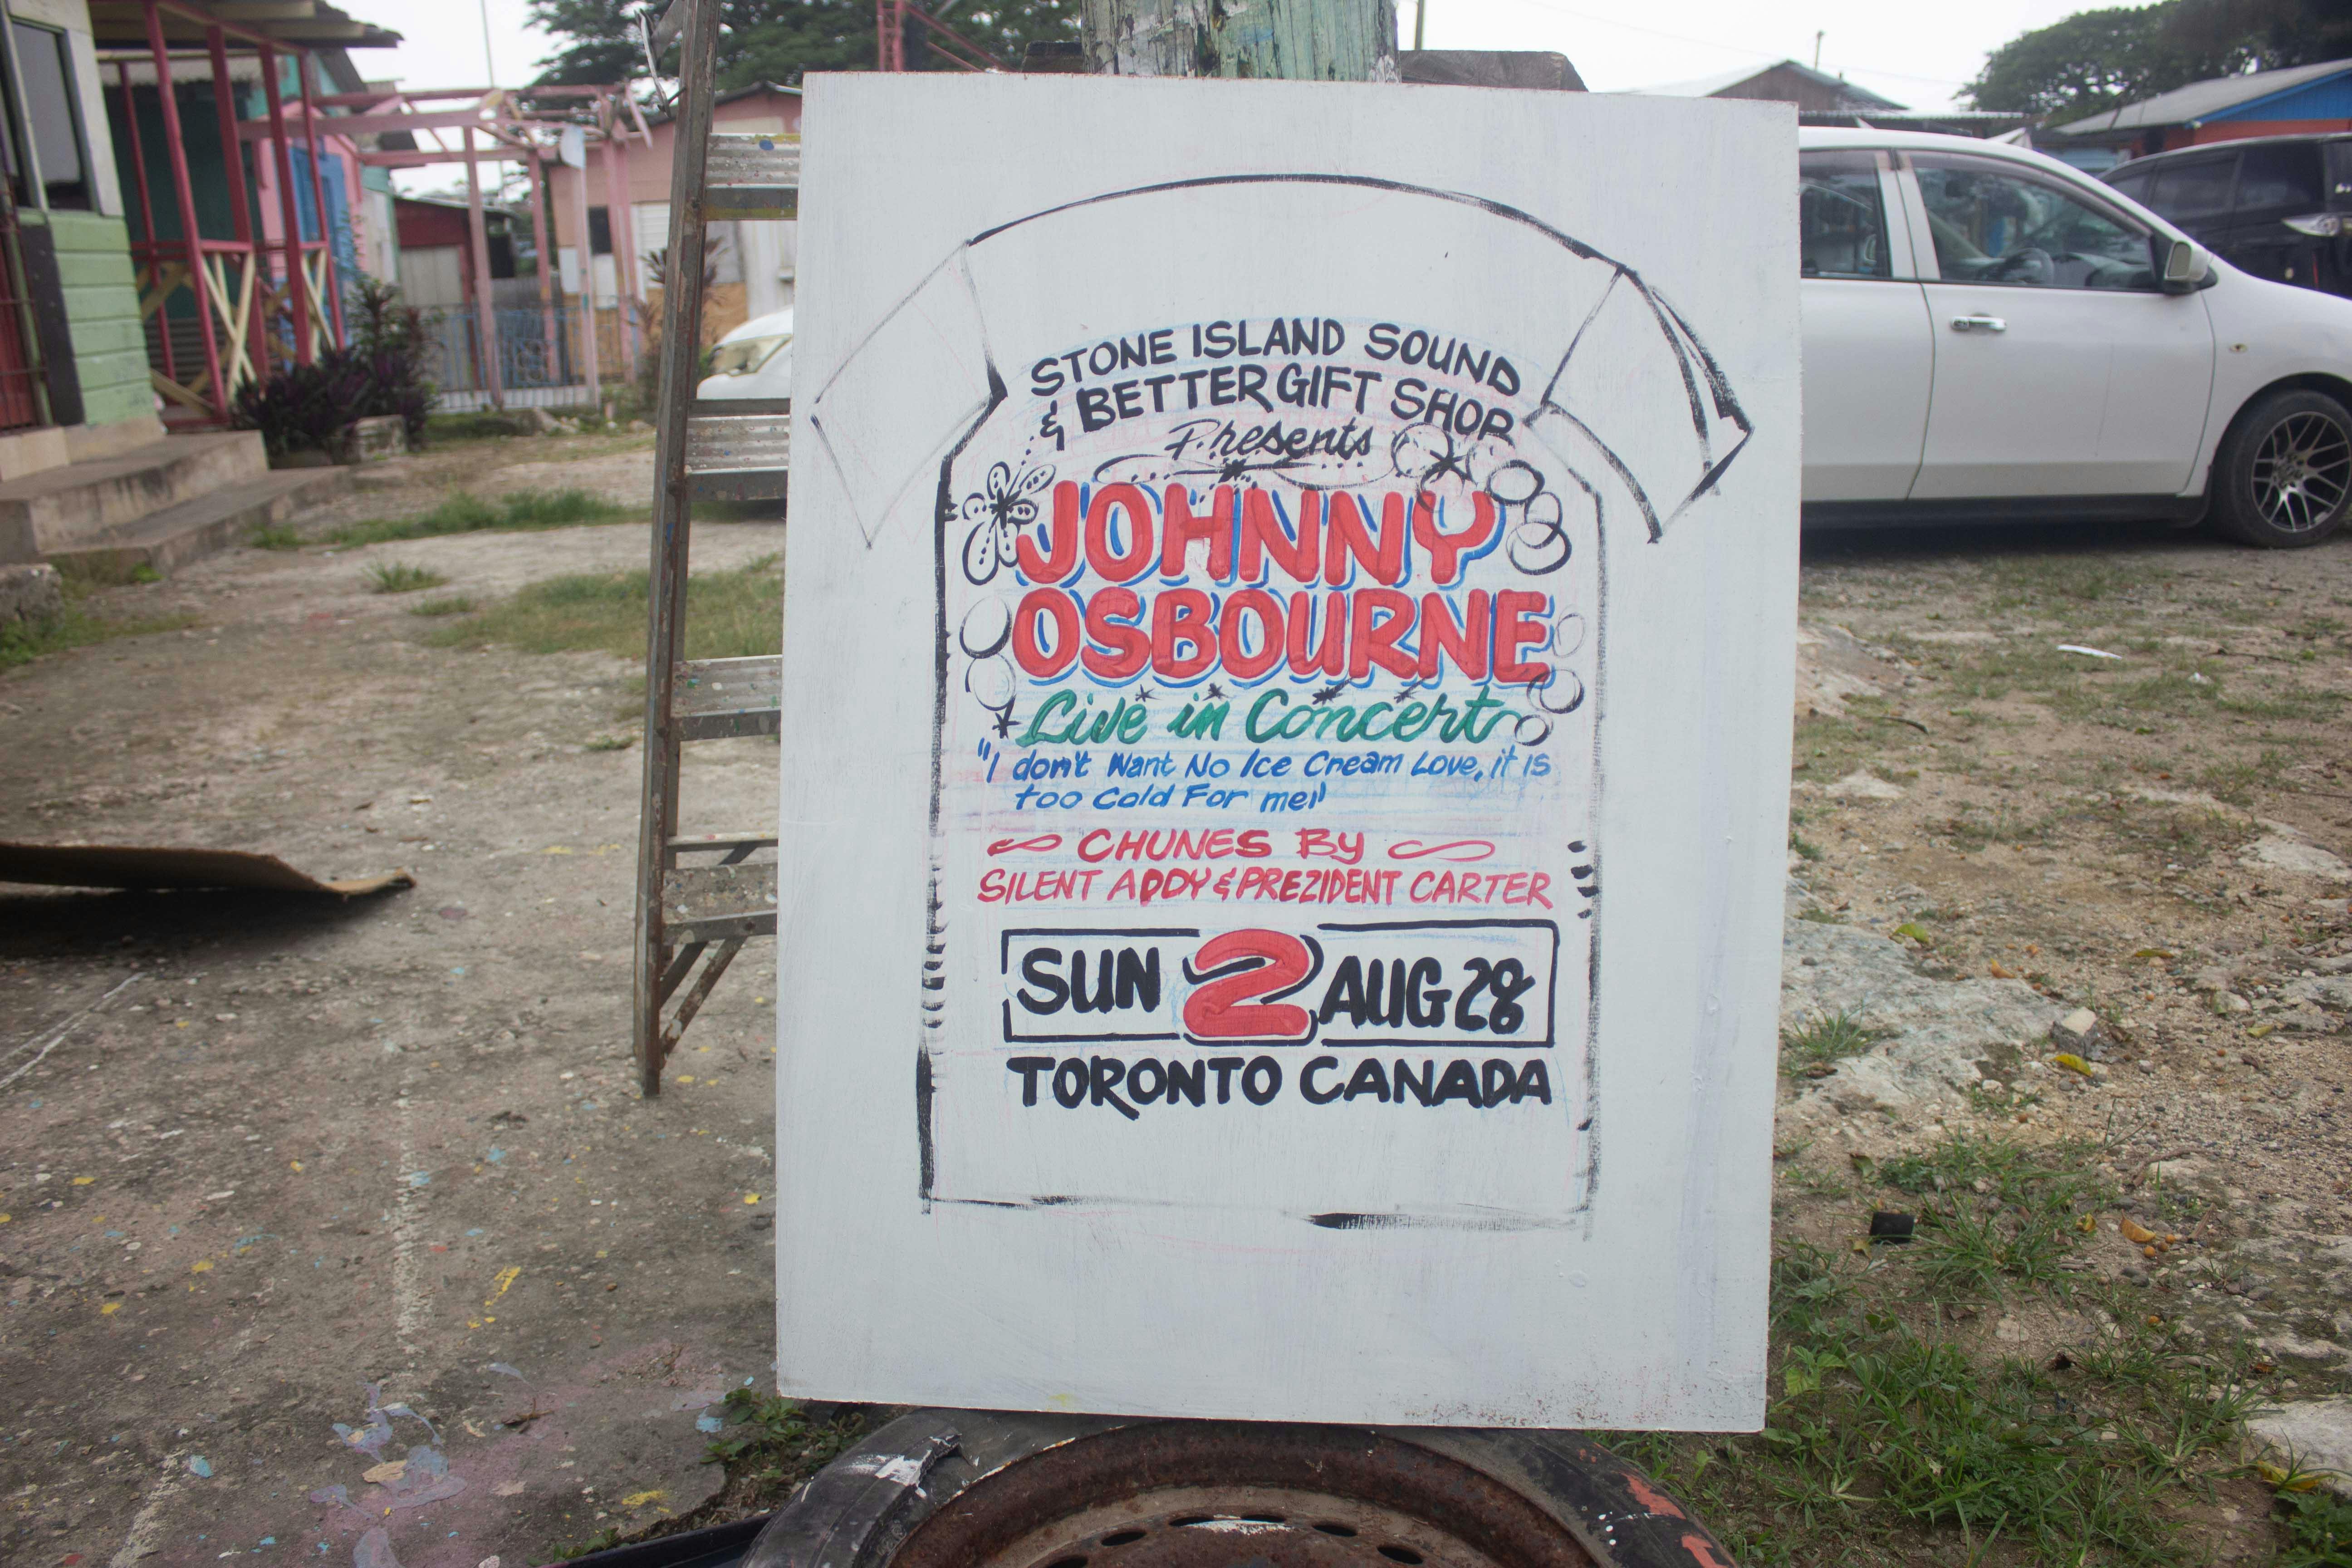 STONE ISLAND SOUND
& BETTER GIFT SHOP
Presents
JOHNNY
OSBOURNE
Live in Concert
"I don't Want No Ice Cream Love, it is
too Cold For me!"
CHUNES BY
SILENT ADDY & PREZIDENT CARTER
SUN 2 AUG 28
TORONTO CANADA